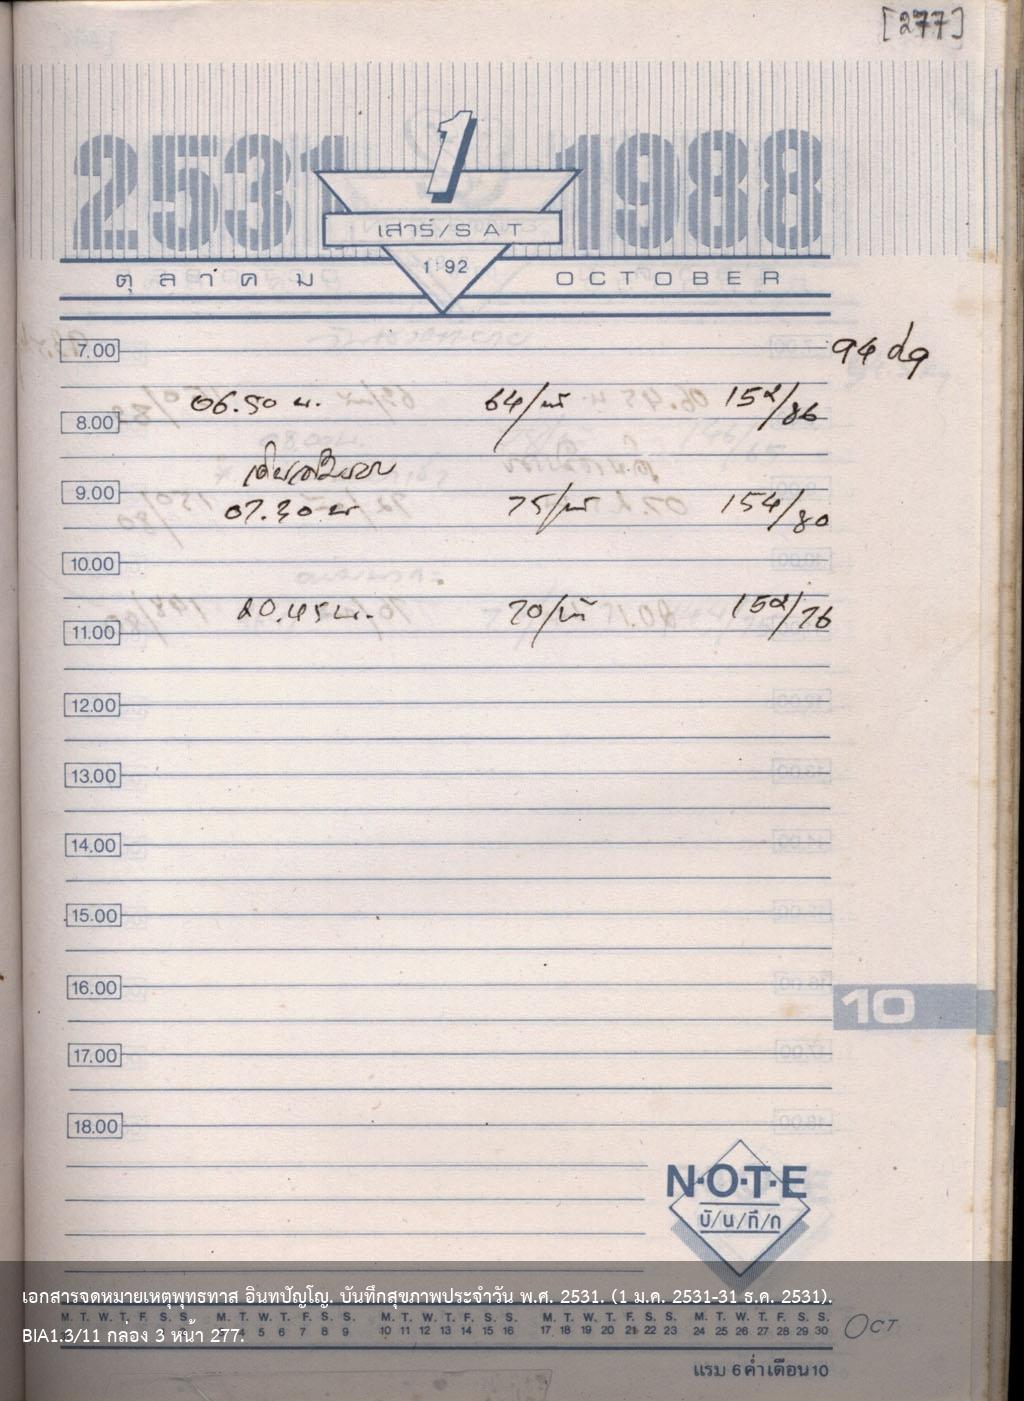 [277]
2531 1 1988
เสาร์/SAT
1 92
ตุลาคม OCTOBER
7.00 94 กก
06.50 น. 64/นที 152/86
8.00
9.00
07.30 น 75/นที 154/80
10.00
20.45 น. 70/นที 152/76
11.00
12.00
13.00
14.00
15.00
16.00
10
17.00
18.00
N·O·T·E
บั/น/ทึ/ก
เอกสารจดหมายเหตุพุทธทาส อินทปัญโญ. บันทึกสุขภาพประจำวัน พ.ศ. 2531. (1 ม.ค. 2531-31 ธ.ค. 2531).
M. T. W. T. F. S. S. M. T. W. T. F. S. S. M. T. W. T. F. S. S. M. T. W. T. F. S. S. M. T. W. T. F. S. S.
4 5 6 7 8 9 10 11 12 13 14 15 16 17 18 19 20 21 22 23 24 25 26 27 28 29 30 OCT
BIA1.3/11 กล่อง 3 หน้า 277.
แรม 6 ค่ำ เดือน 10